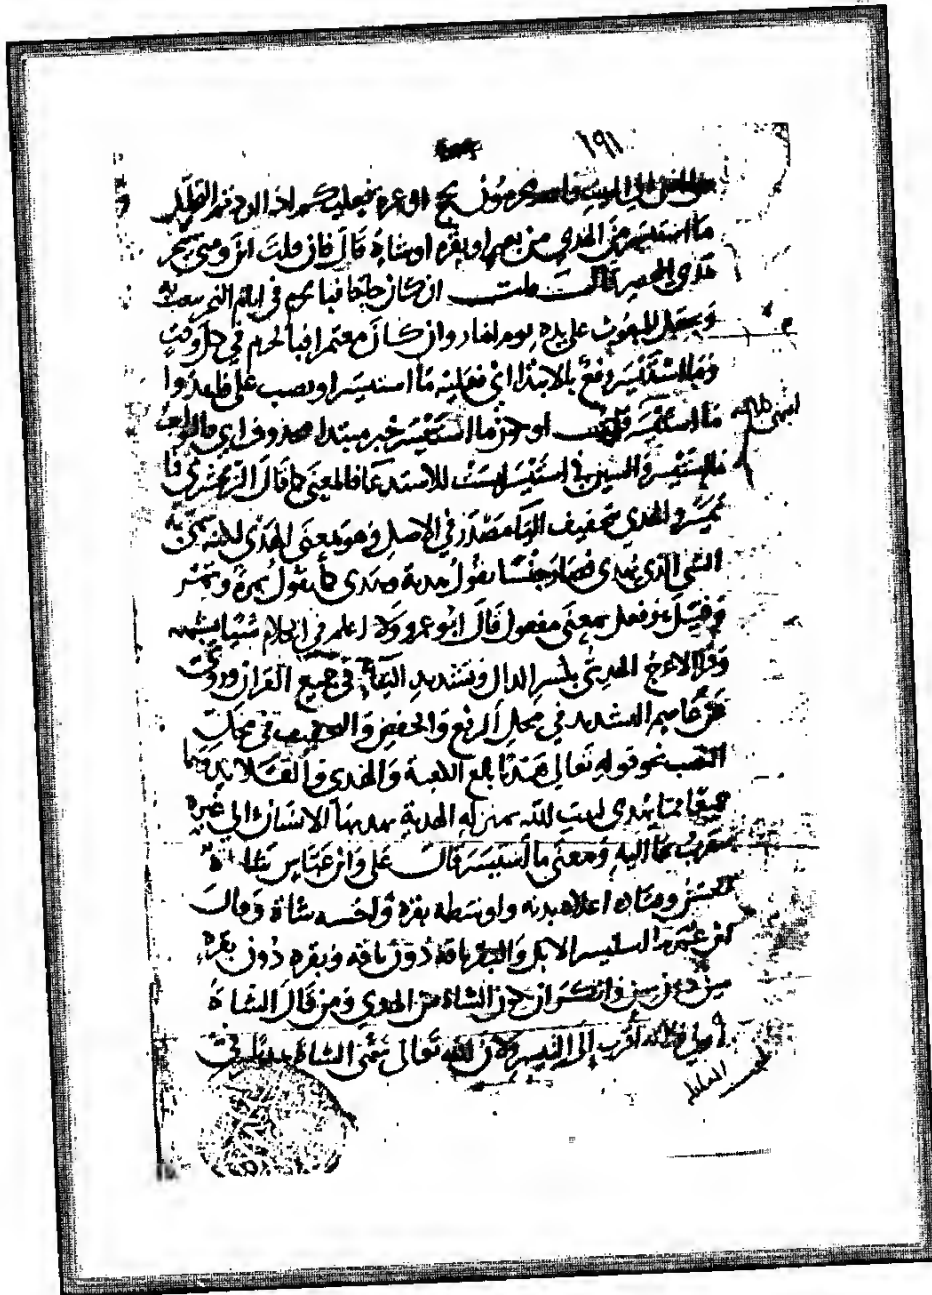 ١٩١
محرمون بحج او عمره فعليكم اذا اردتم التحلل
ما استيسر من الهدي من بعير او بقره او شاة قال فان قلت اين ومتى ينحر
هدي المحصر قالت قلت ان كان حاجا فبالحرم في ايام النحر يبعث به
ويجعل للمبعوث على يده يوم امار وان كان معتمرا فبالحرم في كل وقت
وما استيسر رفع بالابتدا اي فعليه ما استيسر او نصب على فاهدوا
ما استيسر قلت او جوز ما استيسر خبر مبتدا محذوف اي فالواجب
ما استيسر والسين في استيسر ليست للاستدعا فالمعنى كما قال الزمخشري ما
تيسر والهدي بتخفيف اليا مصدر في الاصل وهو بمعنى الهدي للذي سمى به
الشي الذي يهدى فصار جنسا يقول هدية وهدى كما يقول تمرة وتمر
وقيل هو فعل بمعنى مفعول قال ابو عمرو ولا اعلم في الكلام شيا يشبهه
وقرا الاعرج الهدي بكسر الدال وتشديد اليا في جميع القران وروي
عن عاصم التشديد في محل الرفع والخفض والتخفيف في محل
النصب نحو قوله تعالى هديا بالغ الكعبة والهدي والقلائد وهما
جميعا ما يهدى لبيت الله بمنزله الهدية يهديها الانسان الى غيره
متقربا بها اليه ومعنى ما استيسر قال علي وابن عباس
الحسن وقتاده اعلاه بدنه واوسطه بقره واخسه شاة وقال
ابن عمر ما استيسر الابل والبقر ناقة دون ناقه وبقره دون بقره
سن دون سن وانكر ان تكون الشاة من الهدي ومن قال الشاة
لانه اقرب الى اليسر ولان الله تعالى سمى الشاة هديا في